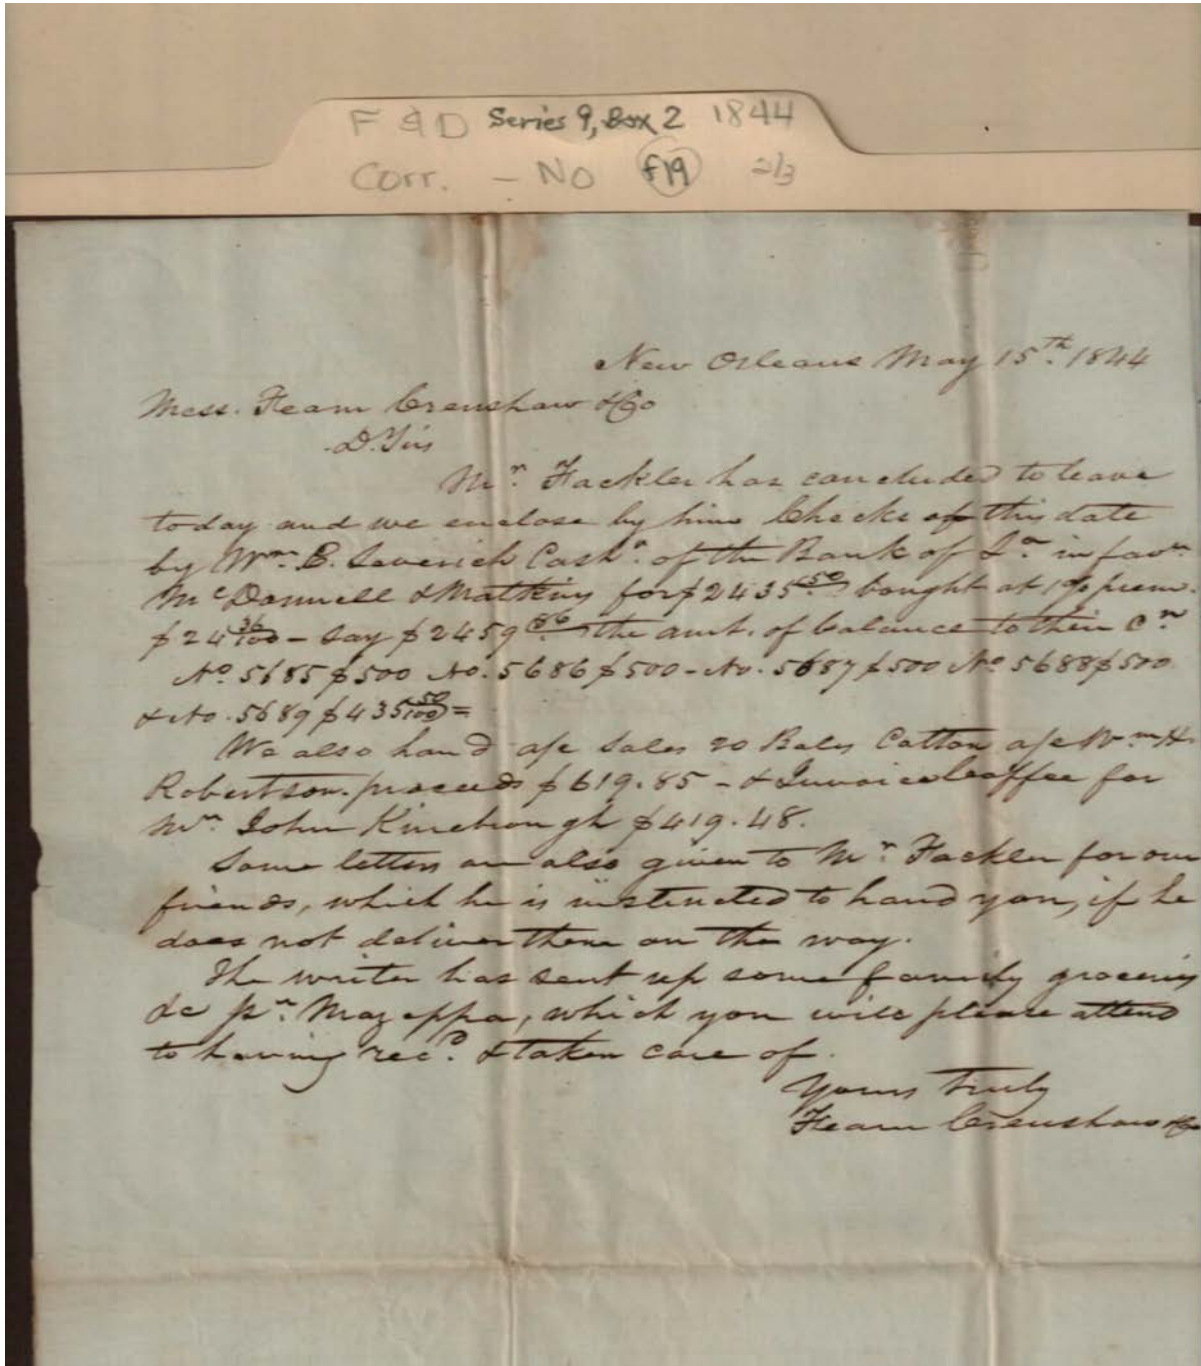 F & D Series 9, Box 2 1844
Corr. — No f19 2/3
New Orleans May 15th. 1844
Mess. Fearn Crenshaw & Co
D. Sirs
Mr. Fackler has concluded to leave
today and we enclose by him Checks of this date
by Wm. E. Leverich Cashr. of the Bank of La. in favr.
McDonnell & Matkins for $2435 50 bought at 1% prem.
$24 36/100 – Say $2459 86 the amt. of balance to their Cr
No. 5685 $500 No. 5686 $500 – No. 5687 $500 No. 5688 $500
& No. 5689 $435 50/100 =
We also hand a/c Sales 20 Bales Cotton a/c Wm H.
Robertson. proceeds $619.85 – & Invoice Coffee for
Mr. John Kinebrough $419.48.
Some letters are also given to Mr. Fackler for our
friends, which he is instructed to hand you, if he
does not deliver them on the way.
The writer has sent up some family groceries
&c pr. Mazeppa, which you will please attend
to having recd. & taken care of.
Yours Truly
Fearn Crenshaw & Co